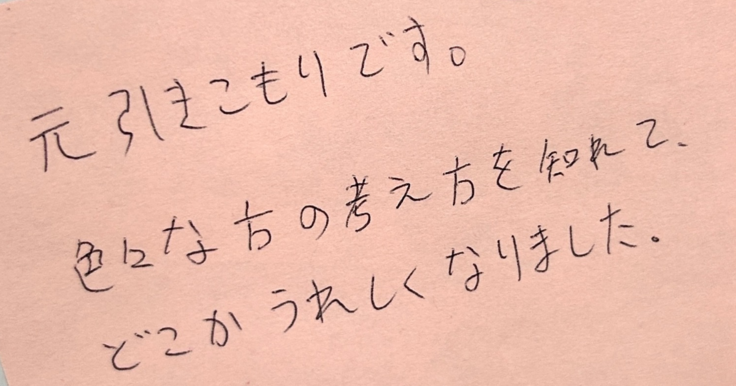 元引きこもりです。
色々な方の考え方を知れて、
どこかうれしくなりました。